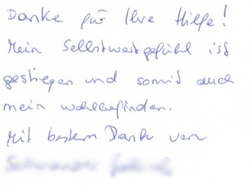 Danke für Ihre Hilfe!
Mein Selbstwertgefühl ist
gestiegen und somit auch
mein wohlbefinden.
Mit bestem Dank von